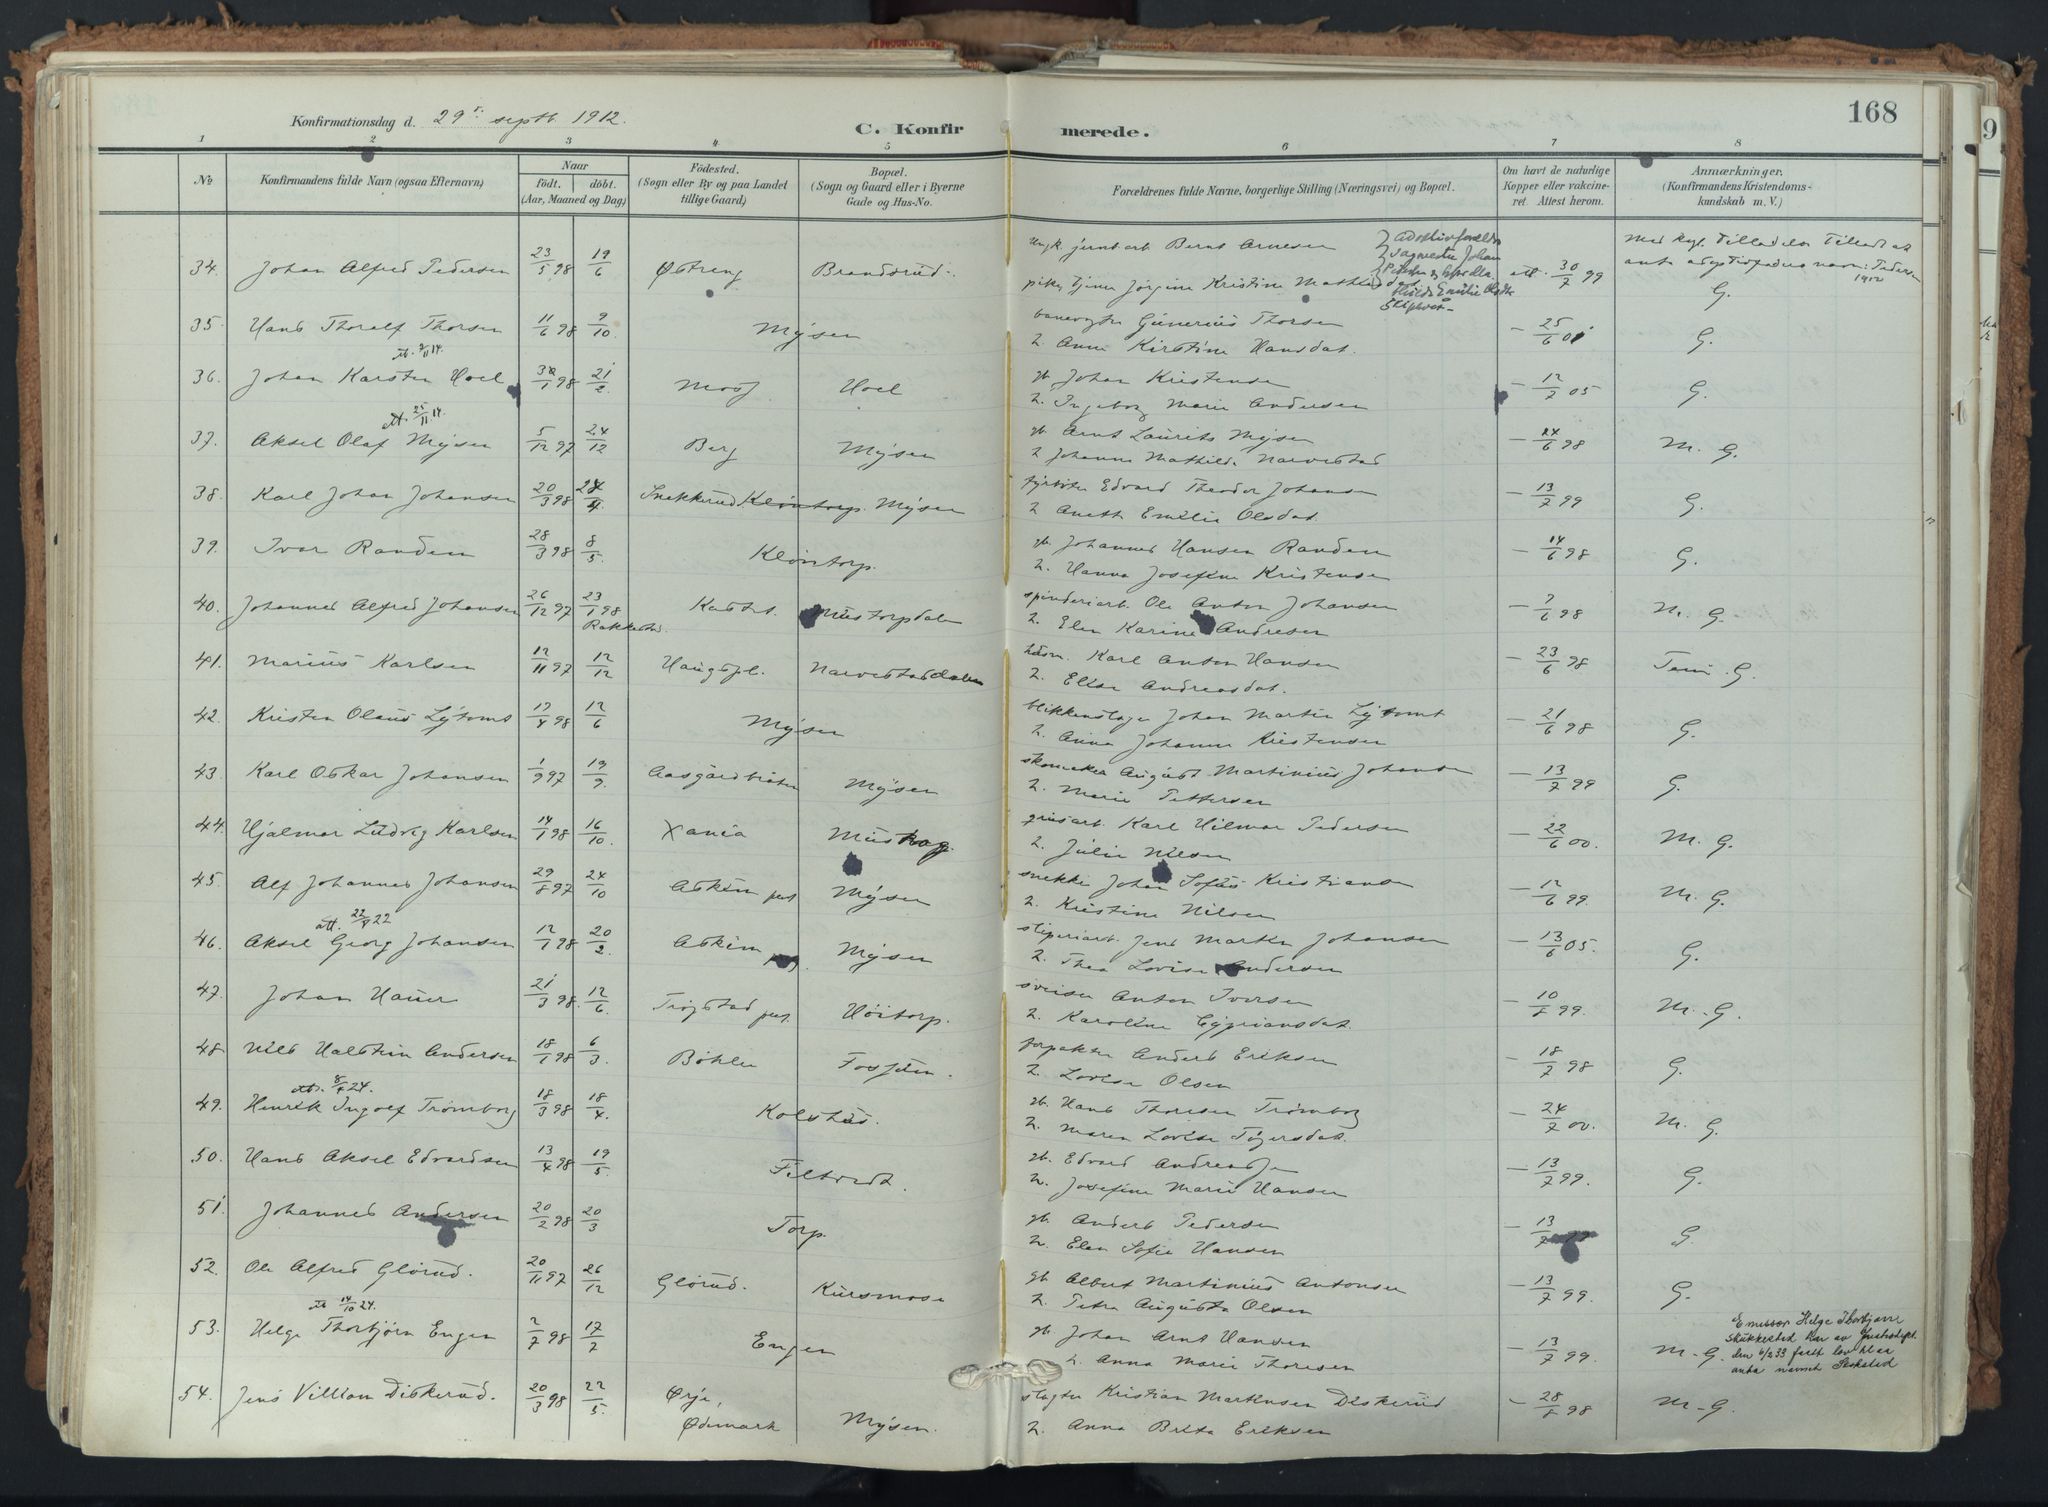 168
Konfirmationsdag d. 29 septb. 1912.
C. Konfirmerede.
1 2 3 4 5 6 7 8
No
Konfirmandens fulde Navn (ogsaa Efternavn)
Naar
födt. döbt.
(Aar, Maaned og Dag)
Födested.
(Sogn eller By og paa Landet
tillige Gaard)
Bopæl.
(Sogn og Gaard eller i Byerne
Gade og Hus-No.
Forældrenes fulde Navne, borgerlige Stilling (Næringsvei) og Bopæl.
Om havt de naturlige
Kopper eller vakcine-
ret Attest herom.
Anmærkninger.
(Konfirmandens Kristendoms-
kundskab m. V.)
34. Johan Alfred Pedersen 23/5 98 19/6 Østreng Brandsrud. Ungk. Bernt Arnesen
pike, Jørgine Kristine 30/7 99 G.
35. Hans Thoralf Thorsen 11/6 98 9/10 Mysen banevogter Gunerius Thorsen
Anne Kirstine Hansdat. 25/6 01 G.
36. Johan Karsten Hoel /1 98 21/2 Moss Hoel gb. Johan Kristensen
Ingeborg Marie Andersen 12/7 05 G.
att. 25/11 14.
37. Aksel Olaf Mysen 5/12 97 24/12 Berg Mysen gb. Arnt Laurits Mysen
Johanne Mathilde Narvestad /6 98 M. G.
38. Karl Johan Johansen 20/3 98 24/4 Snekkerud Kløntorp. Mysen fyrbøter Edvard Theodor Johansen
Anette Emilie Olsdat. 13/7 99 G.
39. Ivar Randem 28/3 98 8/5. Kløntorp. gb. Johannes Hansen Randem
Hanna Josefine Kristensen 14/6 98 G.
40. Johannes Alfred Johansen 26/12 97 23/1 98 Kastet. Mustorpdalen spinderiarb. Ole Anton Johansen
Rakkestad
Elen Karine Andresen 7/6 98 M. G.
41. Marius Karlsen 12/11 97 12/12 Haugspl. Narvestaddalen husm. Karl Anton Hansen
Elise Andreasdat. 23/6 98 G.
42. Kristen Olaus Lytomt 17/4 98 12/6 Mysen blikkenslager Johan Martin Lytomt
Anna Johanne Kristensen 21/6 98 G.
43. Karl Oskar Johansen 1/9 97 19/9. Aasgårdbråten Mysen skomaker August Martinius Johansen
Marie Pettersen 13/7 99 G.
44. Hjalmar Ludvig Karlsen 14/1 98 16/10 Xania grusarb. Karl Hilmar Pedersen
Julie Nilsen 22/6 00. M. G.
45. Alf Johannes Johansen 29/8 97 24/10 Askim pgd. Mysen snekker Johan Sofus Kristiansen
Kristine Nilsen 12/6 99. M. G.
att. 22/ 22
46. Aksel Georg Johansen 12/1 98 20/2. Askim Mysen sliperiarb. Jens Martin Johansen
Thea Lovise Andersen 13/6 05. G.
47. Johan Hauer 21/3 98. 12/6. Trøgstad Høitorp. sveiser Anton Iversen
Karoline Cypriansdat. 10/8 99. M.-G.
48. Nils Halstein Andersen 18/1 98 6/3. Bøhler Fossum. forpakter Anders Eriksen
Lovise Olsen 18/7 98 G.
att. 8/4 24.
49. Henrik Ingolf Trømborg 18/3 98 18/4. Kolshus. gb. Hans Thoresen Trømborg
Maren Lovise Tøgersdat. 24/7 00. M. G.
50. Hans Aksel Edvardsen 13/4 98 19/5. Filtvedt. gb. Edvard Andreassen
Josefine Marie Hansen 13/7 99. G.
51. Johannes Andersen 20/2 98 20/3 Torp. gb. Anders Pedersen
Elen Sofie Hansen 13/7 G.
52. Ole Alfred Glørud. 20/11 97 26/12 Glørud. Kursmose gb. Albert Martinius Antonsen
Petra Augusta Olsen 13/7 99. G.
att. 14/10 24.
53. Helge Thorbjørn Engen 2/7 98 17/7 Engen gb. Johan Arnt Hansen
Anna Marie Thoresen 13/7 99. M-G.
Emissær Helge Thorbjørn
har av Justisdept.
den 6/2 33 fått lov til aa
anta navnet
54. Jens Villiam Diskerud. 20/3 98 22/5. Ørje, Ødemark Mysen. slagter Kristian Martinsen Diskerud
Anna Brita Eriksen 28/8 98 M-G.